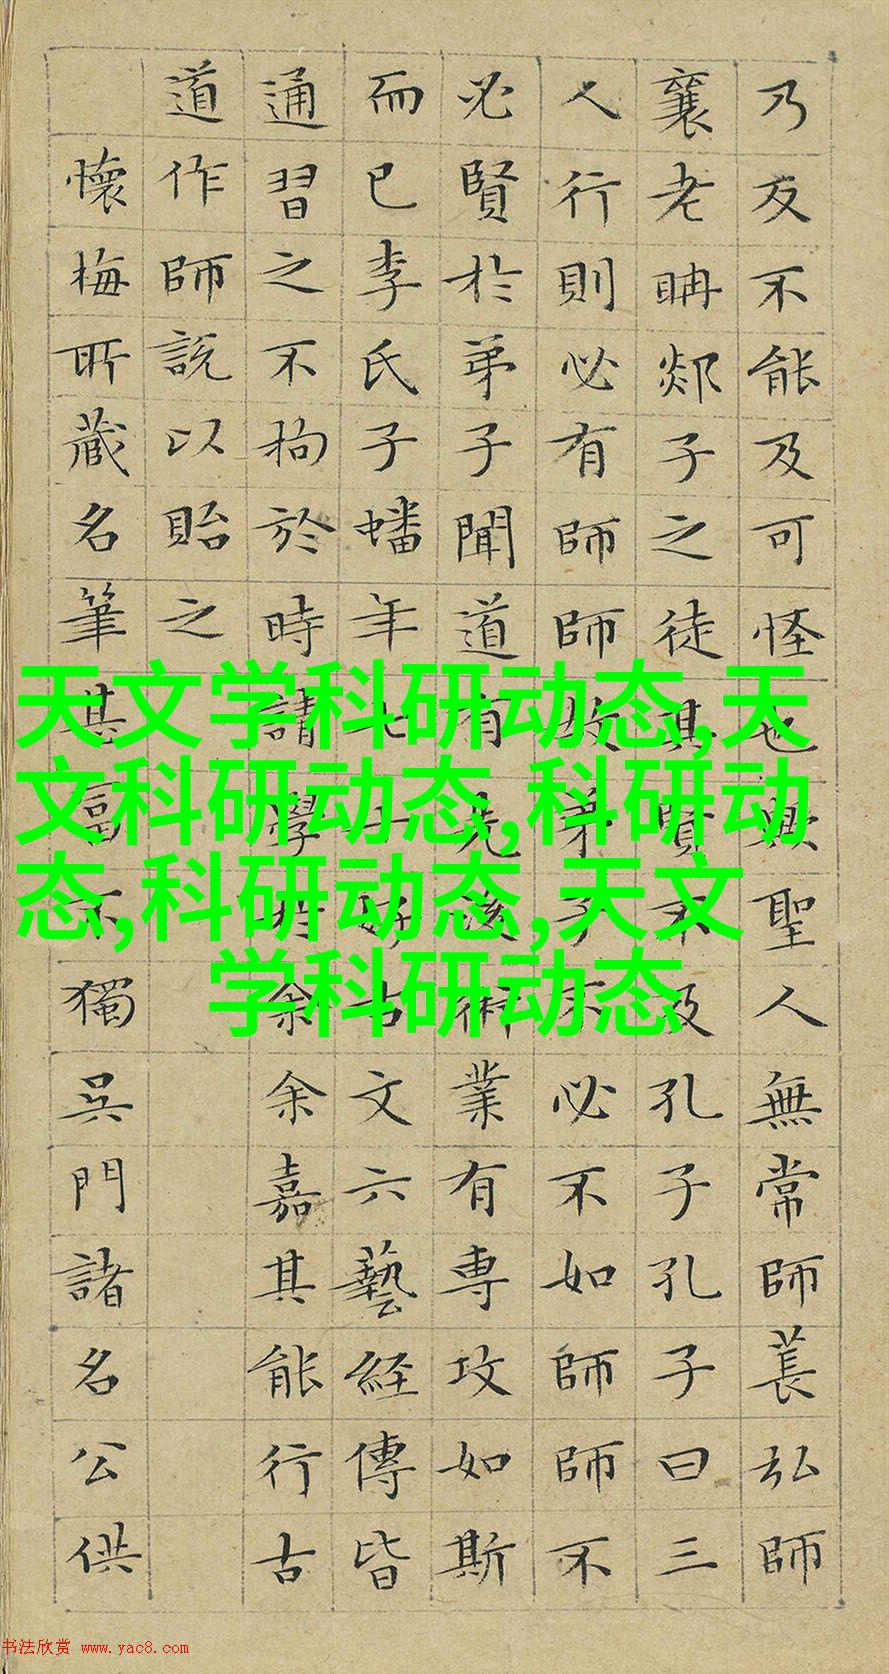 乃反不能及可怪也歟聖人無常師萇弘師
襄老聃郯子之徒其賢不及孔子孔子曰三
人行則必有師師故弟子不必不如師師不
必賢於弟子聞道有先後術業有專攻如斯
而已李氏子蟠年十七好古文六藝経傳皆
通習之不拘於時請學於余余嘉其能行古
道作師説以貽之
懷梅所蔵名筆甚富不獨吳門諸名公供
天文学科研动态,天
文科研动态,科研动
态,科研动态,天文
学科研动态
书法欣赏 www.yac8.com